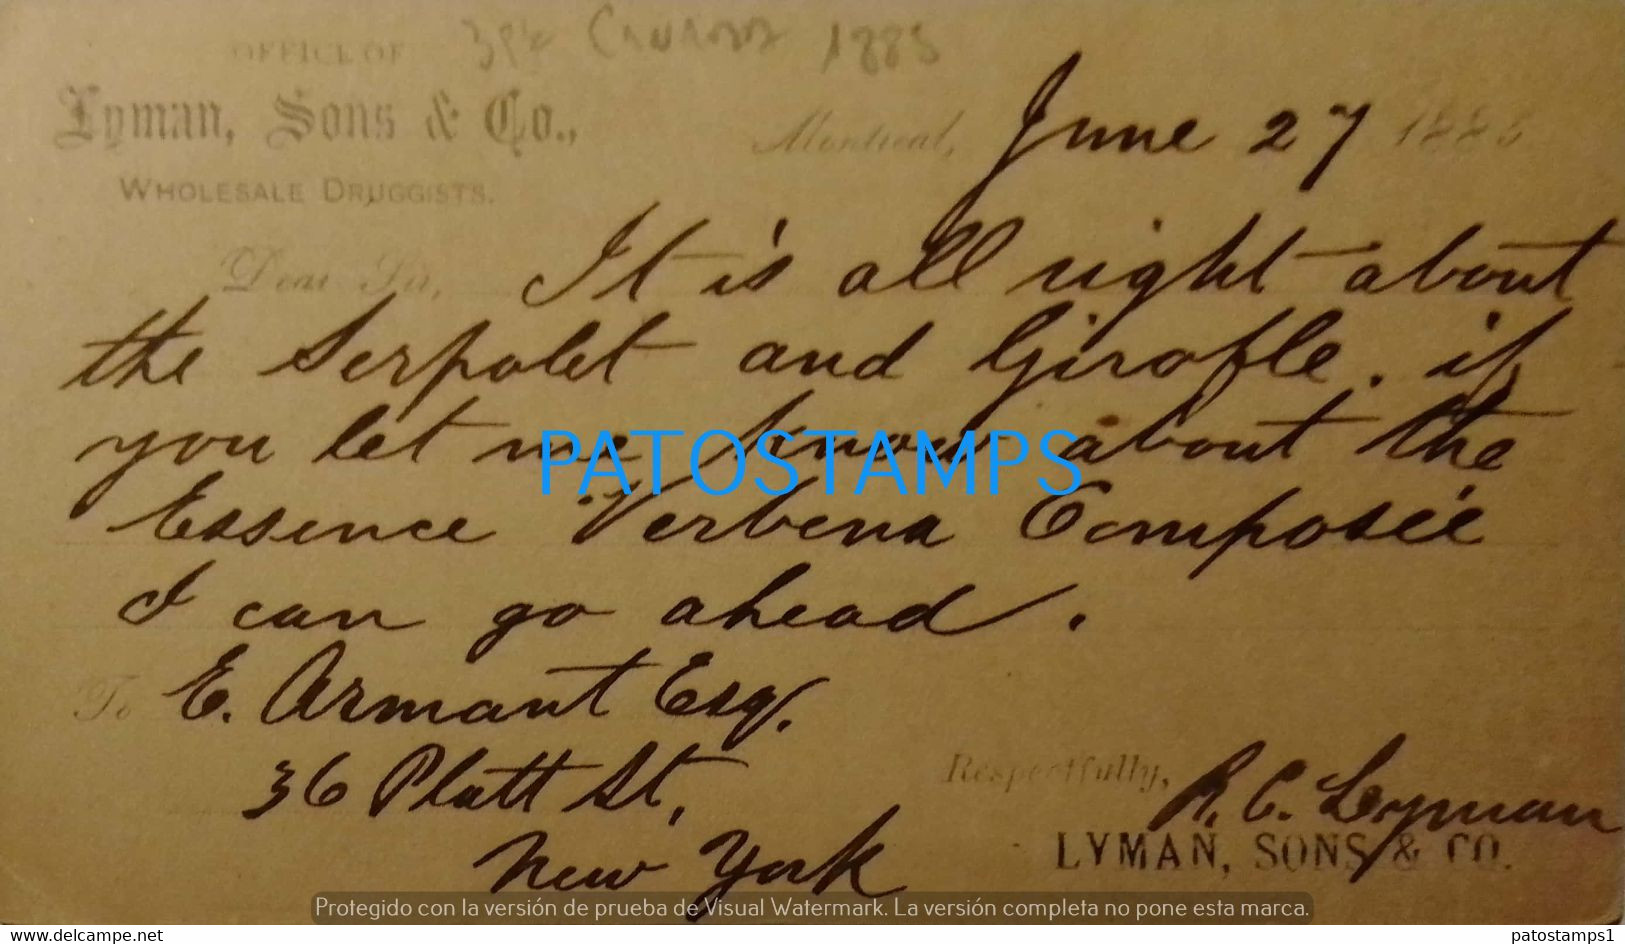 OFFICE OF
1885
Lyman, Sons & Co.,
WHOLESALE DRUGGISTS.
Montreal, June 27 1885
Dear Sir, It is all right about
the Serpolet and Girofle. if
you let me know about the
Essence Verbena Composée
I can go ahead.
To E. Armant Esq.
36 Platt St,
New York
Respectfully,
R. C. Lyman
LYMAN, SONS & CO.
PATOSTAMPS
Protegido con la versión de prueba de Visual Watermark. La versión completa no pone esta marca.
www.delcampe.net
patostamps1